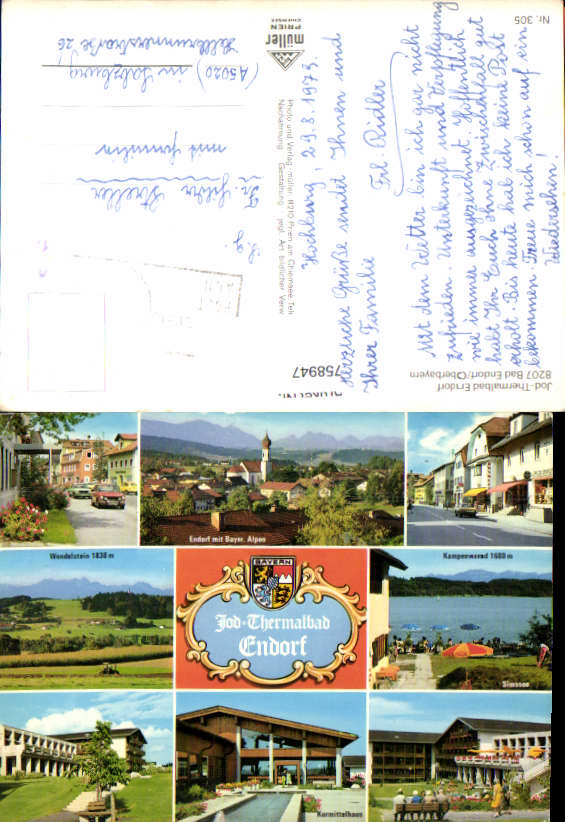 Jod-Thermalbad Endorf
8207 Bad Endorf/Oberbayern
Nr. 305
758947
Hochberg, 29.8.1973.
Herzliche Grüße sendet Ihnen und
Ihrer Familie
Frl. Rudler
Mit dem Wetter bin ich gar nicht
zufrieden. Unterkunft und Verpflegung
wie immer ausgezeichnet. Hoffentlich
habt Ihr Euch ohne Zwischenfall gut
erholt. Bis heute hab ich keine Post
bekommen. Freue mich schon auf ein
Wiedersehen!
Photo und Verlag müller 8210 Prien am Chiemsee, Tele
Nachahmung Gestaltung jegl. Art bildlicher Verw
müller
PRIEN
CHIEMSEE
Fr.
mit Familie
(A5020) in Salzburg
Hellbrunnerstraße 26
Endorf mit Bayer. Alpen
Wendelstein 1838 m
BAYERN
Jod-Thermalbad
Endorf
Kampenwand 1669 m
Simssee
Kurmittelhaus